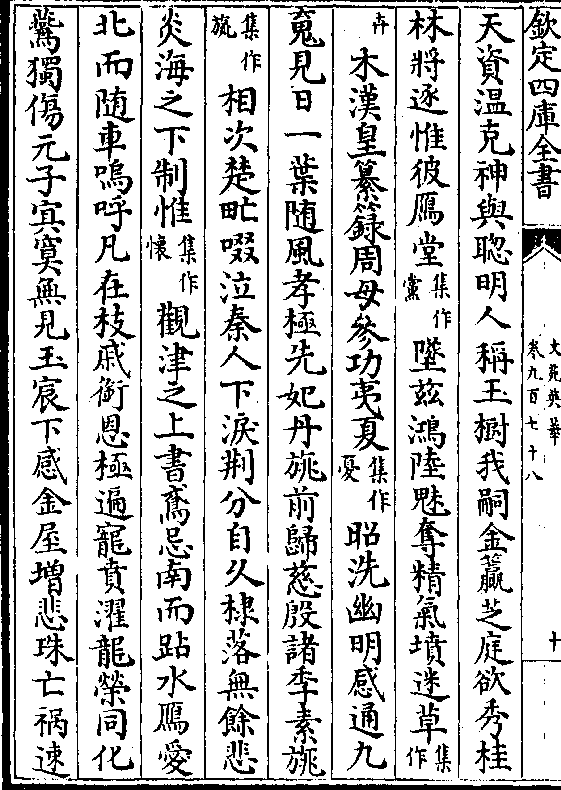 欽定四庫全書
文苑英華
卷九百七十八
十
天資温克神與聦明人稱王樹我嗣金籯芝庭欲秀桂
林將逐惟彼鴈堂集作黨墜兹鴻陸魅奪精氣墳迷草集作
卉木漢皇纂録周母參功夷夏集作憂昭洗幽明感通九
嵬見日一葉随風孝極先妃丹旐前歸慈殷諸季素旐
集作旒相次楚甿啜泣秦人下淚荆分自久棣落無餘悲
炎海之下制惟集作懷觀津之上書鳶忌南而跕水鴈愛
北而随車嗚呼凡在枝戚銜恩極遍寵賁濯龍榮同化
鷰獨傷元子㝠寞無見玉宸下感金屋増悲珠亡禍速